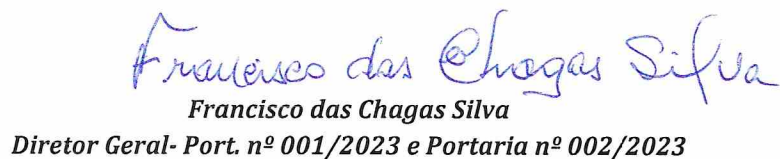 Francisco das Chagas Silva
Francisco das Chagas Silva
Diretor Geral- Port. nº 001/2023 e Portaria nº 002/2023